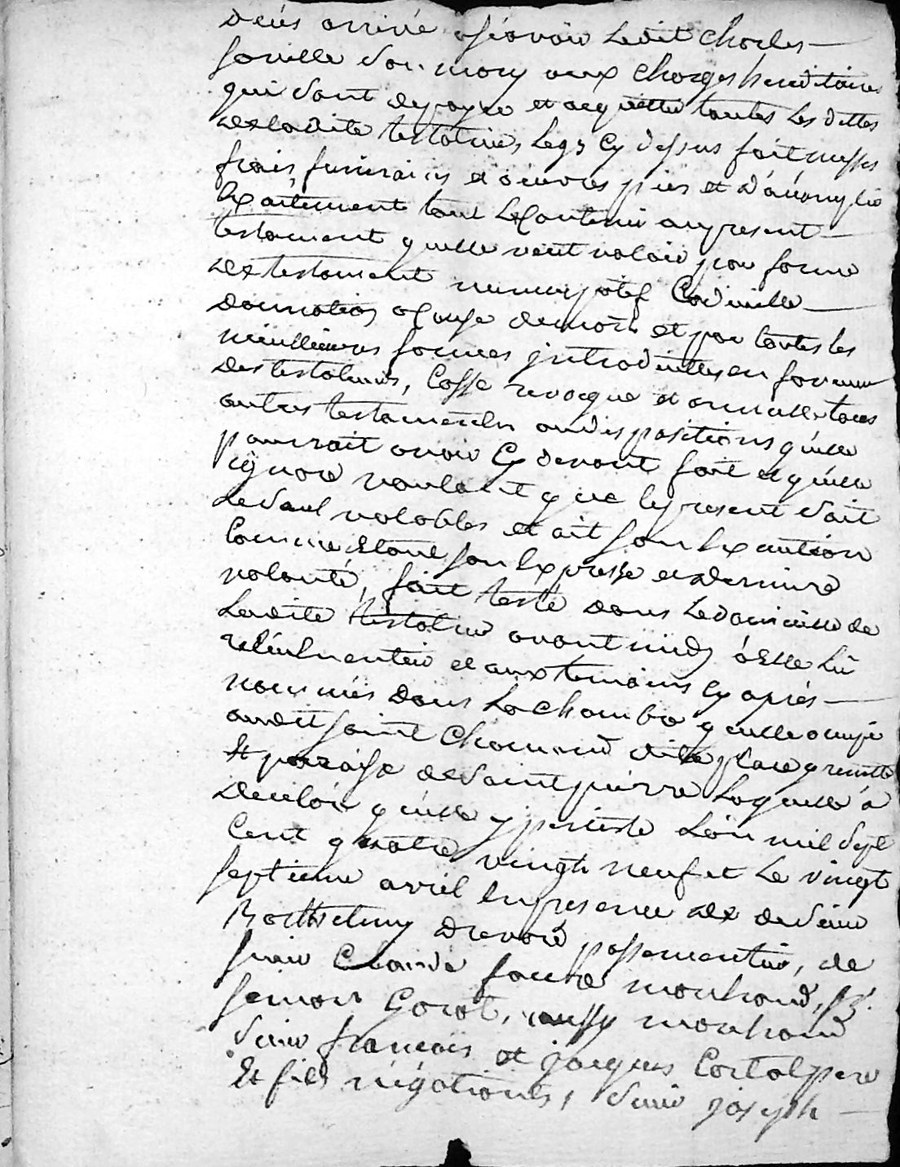 deces arrivé asçavoir ledit Charles
faville son mary aux charges hereditaires
qui sont de payer et acquitter toutes les dettes
de ladite testatrice, legs cy dessus fait messes
frais funeraires et oeuvres pies et d'accomplir
exactement tout le contenu au present
testament qu'elle veut valoir par forme
de testament nuncupatif Codicille
donnation a cause de mort et par toutes les
meilleures formes introduittes en faveur
des testateurs, Casse revoque et annulle tous
autres testaments ou dispositions qu'elle
pourrait avoir cy devant fait et qu'elle
ignore voulant que le present soit
le seul valable et ait son execution
comme etant son expresse et derniere
volonté, fait testé dans le domicille de
ladite testatrice avant midy à Elle lû
et aux temoins cy après
nommés dans la chambre qu'elle occupe
audit Saint Chamond ville place grenette
Et paroisse de Saint pierre laquelle à
declaré qu'elle y persiste L'an mil sept
cent quatre vingt neuf et le vingt
septieme avril En presence de Sieur
Barthelemy passementier, de
sieur Claude marchand,
Simon aussy marchand
sieur francois et jacques pere
Et fils négotiants, Sieur joseph